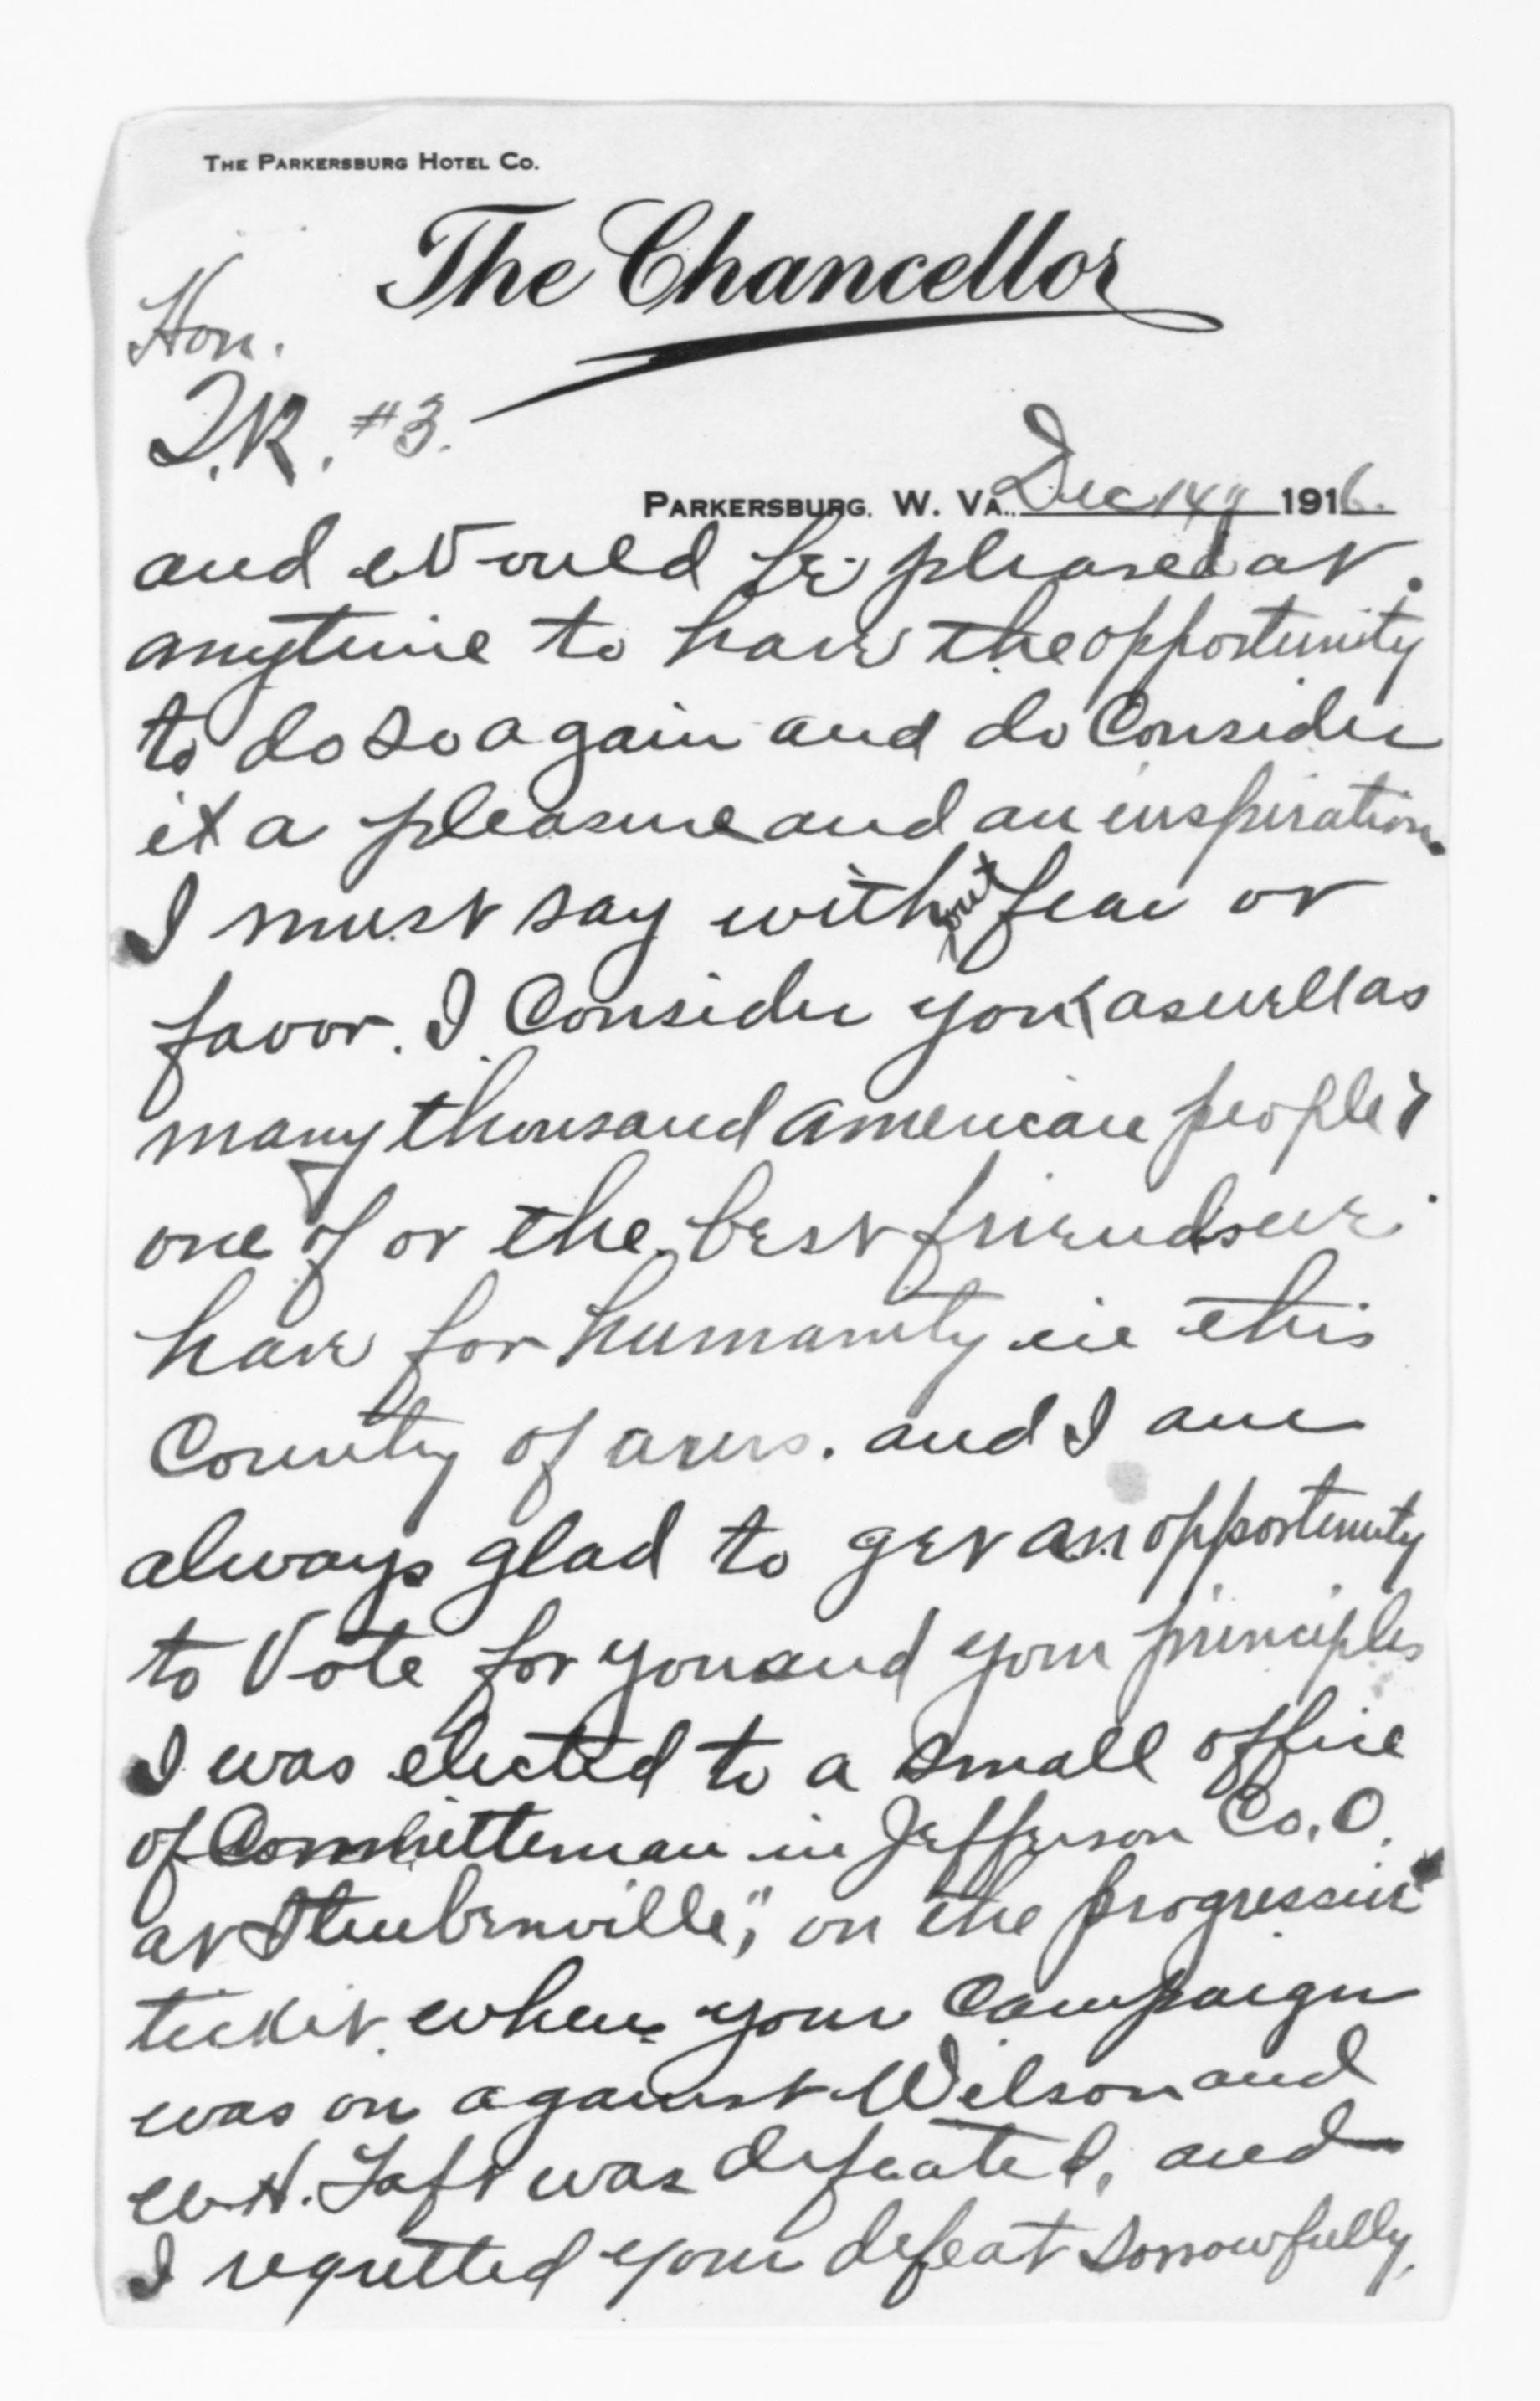 THE PARKERSBURG HOTEL CO.
The Chancellor
Hon.
T.R. #3.
PARKERSBURG, W. VA., Dec 14 1916.
and Would be pleased at
anytime to have the opportunity
to do so again and do Consider
it a pleasure and an inspiration.
I must say without fear or
favor. I Consider you as well as
many thousand american people's
one of or the best friends we
have for humanity in this
Country of ours. and I am
always glad to get an opportunity
to Vote for you and your principles
I was elected to a small office
of Committeman in Jefferson Co. O.
at Steubenville," on the progressive
ticket. when your Campaign
was on against Wilson and
W.H. Taft was defeated, and
I regretted your defeat sorrowfully.